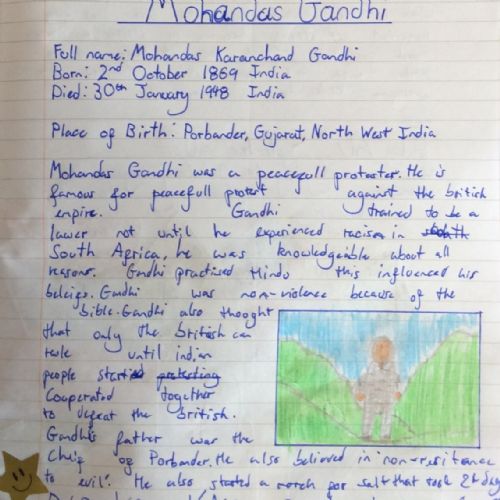 Mohandas Gandhi
Full name: Mohandas Karamchand Gandhi
Born: 2nd October 1869 India
Died: 30th January 1948 India
Place of Birth: Porbander, Gujarat, North West India
Mohandas Gandhi was a peacefull protester. He is
famous for peacefull protest against the british
empire. Gandhi trained to be a
lawer not until he experienced racism in
South Africa, he was knowledgeable about all
reasons. Gandhi practised Hindu this influenced his
beliefs. Gandhi was non-violence because of the
bible. Gandhi also thought
that only the british can
rule until indian
people started protesting
Cooperated together
to defeat the british.
Gandhi's father was the
Chief of Porbander. He also believed in 'non-resistance
to evil'. He also started a march for salt that took 24 day